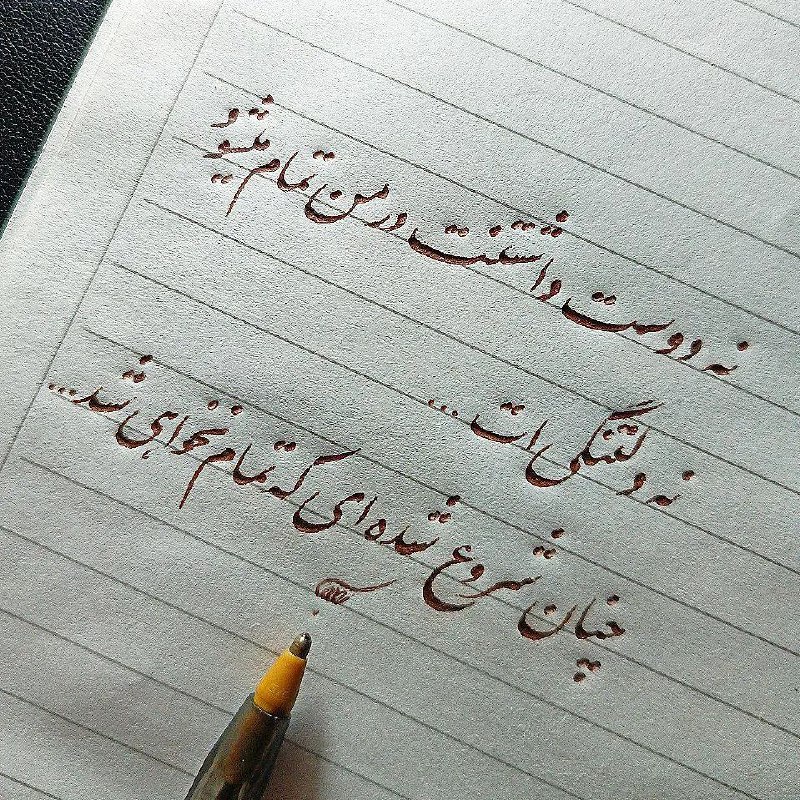 نه دوست داشتنت در من تمام میشود
نه دلتنگی ات...
چنان شروع شده ای که تمام نخواهی شد...